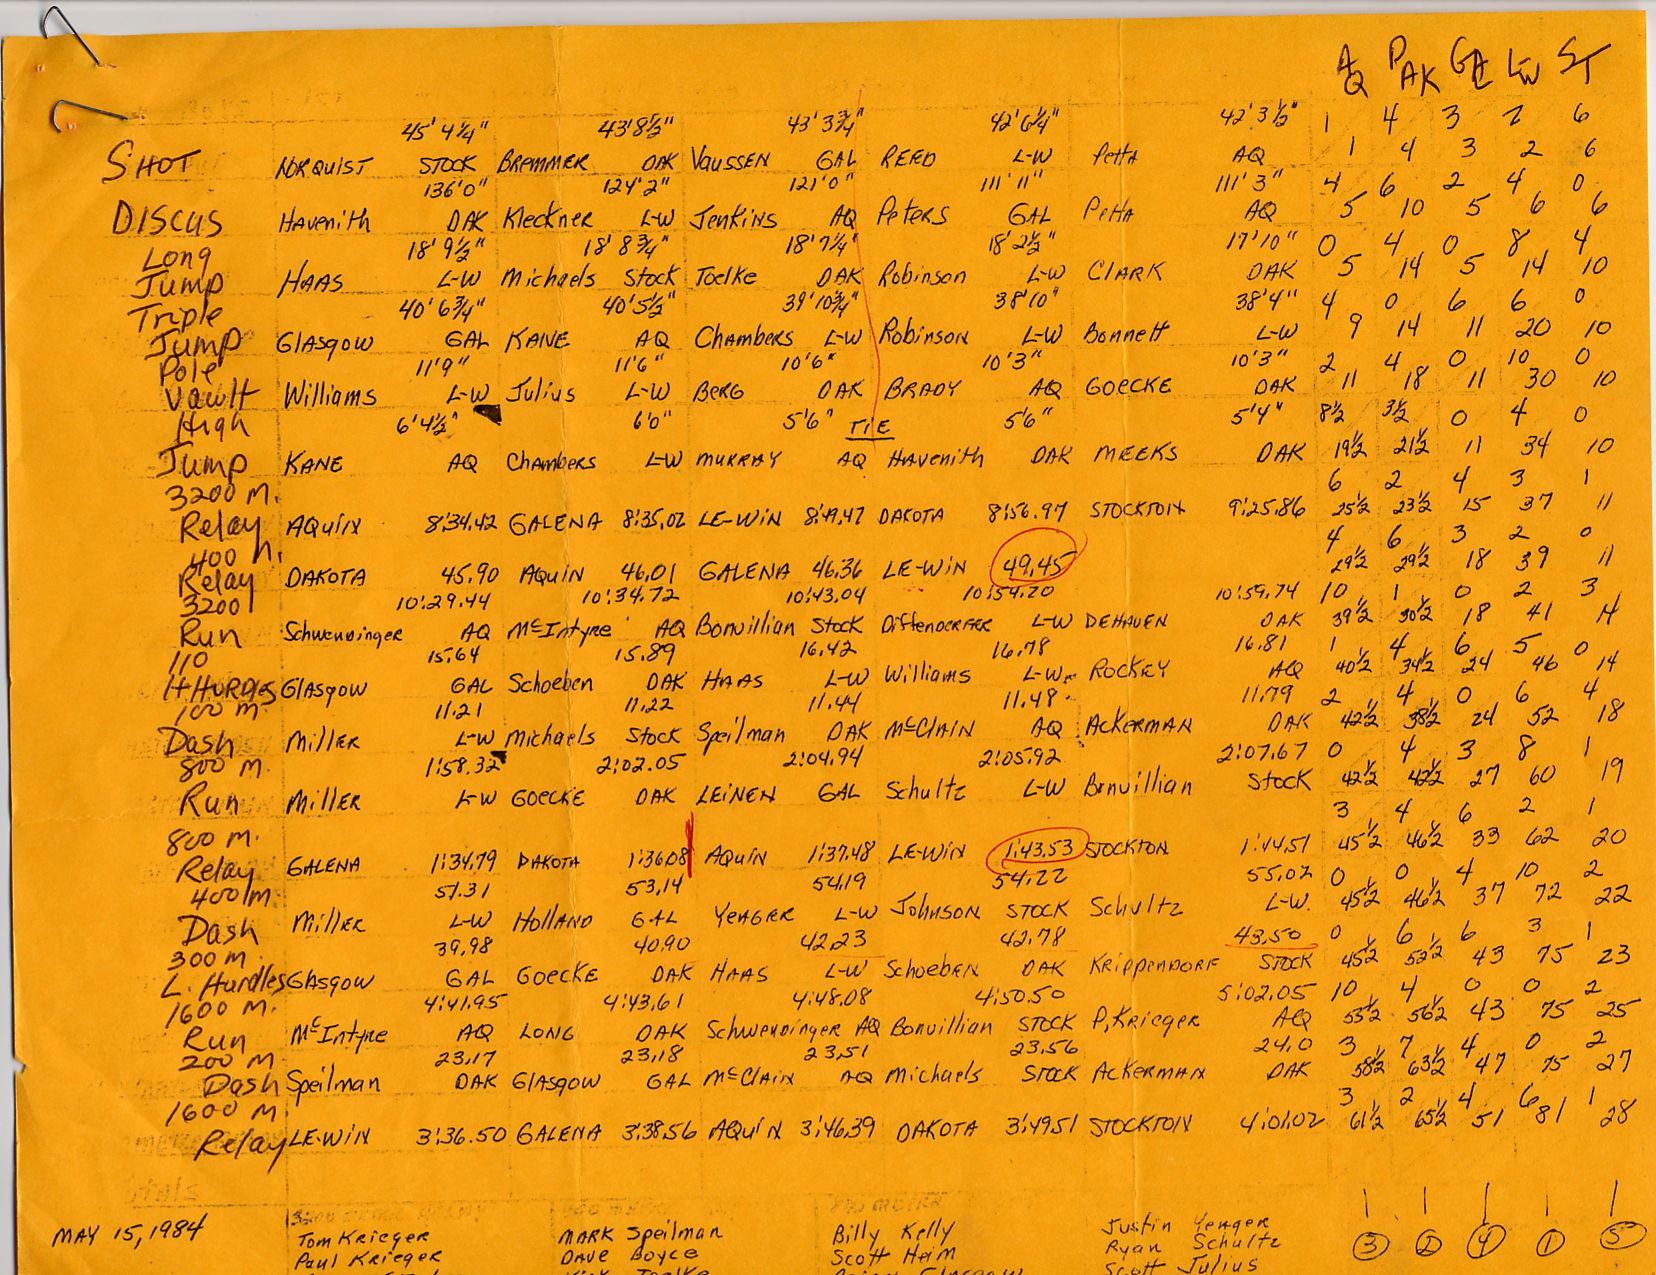 AQ DAK GAL L-W ST
45'4¼" 43'8½" 43'3¾" 42'6¼" 42'3½" 1 4 3 2 6
SHOT NORQUIST STOCK BREMMER DAK VAUSSEN GAL REED L-W Petta AQ 1 4 3 2 6
136'0" 124'2" 121'0" 111'11" 111'3" 4 6 2 4 0
DISCUS Havenith DAK Kleckner L-W Jenkins AQ Peters GAL Petta AQ 5 10 5 6 6
Long 18'9½" 18'8¾" 18'7¼" 18'2½" 17'10" 0 4 0 8 4
Jump HAAS L-W Michaels Stock Toelke DAK Robinson L-W CLARK DAK 5 14 5 14 10
Triple 40'6¾" 40'5½" 39'10¾" 38'10" 38'4" 4 0 6 6 0
Jump Glasgow GAL KANE AQ Chambers L-W Robinson L-W Bonnett L-W 9 14 11 20 10
Pole 11'9" 11'6" 10'6" 10'3" 10'3" 2 4 0 10 0
Vault Williams L-W Julius L-W Berg DAK BRADY AQ GOECKE DAK 11 18 11 30 10
High 6'4½" 6'0" 5'6" TIE 5'6" 5'4" 8½ 3½ 0 4 0
Jump KANE AQ Chambers L-W MURRAY AQ HAvenith DAK MEEKS DAK 19½ 21½ 11 34 10
3200 M. 6 2 4 3 1
Relay AQuin 8:34.42 GALENA 8:35.02 LE-WiN 8:49.47 DAKOTA 8:56.97 STOCKTON 9:25.86 25½ 23½ 15 37 11
400 M. 4 6 3 2 0
Relay DAKOTA 45.90 AQuin 46.01 GALENA 46.36 LE-WiN 49.45 29½ 29½ 18 39 11
3200 10:29.44 10:34.72 10:43.04 10:54.20 10:59.74 10 1 0 2 3
Run Schwendinger AQ McIntyre AQ Bonvillian Stock Diffenderfer L-W DEHAVEN DAK 39½ 30½ 18 41 14
110 15.64 15.89 16.42 16.78 16.81 1 4 6 5 0
H HURDles Glasgow GAL Schoeben DAK HAAS L-W Williams L-W ROCKEY AQ 40½ 34½ 24 46 14
100 M. 11.21 11.22 11.44 11.48 11.79 2 4 0 6 4
Dash Miller L-W Michaels Stock Speilman DAK McClAIN AQ AckermAN DAK 42½ 38½ 24 52 18
800 M. 1:58.32 2:02.05 2:04.94 2:05.92 2:07.67 0 4 3 8 1
Run Miller L-W GOECKE DAK LEINEN GAL Schultz L-W Bonvillian Stock 42½ 42½ 27 60 19
800 M. 3 4 6 2 1
Relay GALENA 1:34.79 DAKOTA 1:36.08 AQuin 1:37.48 LE-WiN 1:43.53 STOCKTON 1:44.51 45½ 46½ 33 62 20
400 M. 51.31 53.14 54.19 54.22 55.02 0 0 4 10 2
Dash Miller L-W HollAND GAL YENGER L-W JOHNSON STOCK Schultz L-W. 45½ 46½ 37 72 22
300 M. 39.98 40.90 42.23 42.78 43.50 0 6 6 3 1
L. Hurdles Glasgow GAL GOECKE DAK HAAS L-W Schoeben DAK KRIPPENDORF STOCK 45½ 52½ 43 75 23
1600 M. 4:41.95 4:43.61 4:48.08 4:50.50 5:02.05 10 4 0 0 2
Run McIntyre AQ LONG DAK Schwendinger AQ Bonvillian STOCK P. Krieger AQ 55½ 56½ 43 75 25
200 M. 23.17 23.18 23.51 23.56 24.0 3 7 4 0 2
Dash Speilman DAK Glasgow GAL McClAIN AQ Michaels STOCK AckermAN DAK 58½ 63½ 47 75 27
1600 M. 3 2 4 6 1
Relay LE-WiN 3:36.50 GALENA 3:38.56 AQuin 3:46.39 DAKOTA 3:49.51 STOCKTON 4:01.02 61½ 65½ 51 81 28
MAY 15, 1984 Tom Krieger MARK Speilman Billy Kelly Justin Yenger 3 2 4 1 5
Paul Krieger DAVE Boyce Scott Heim Ryan Schultz
Scott Julius